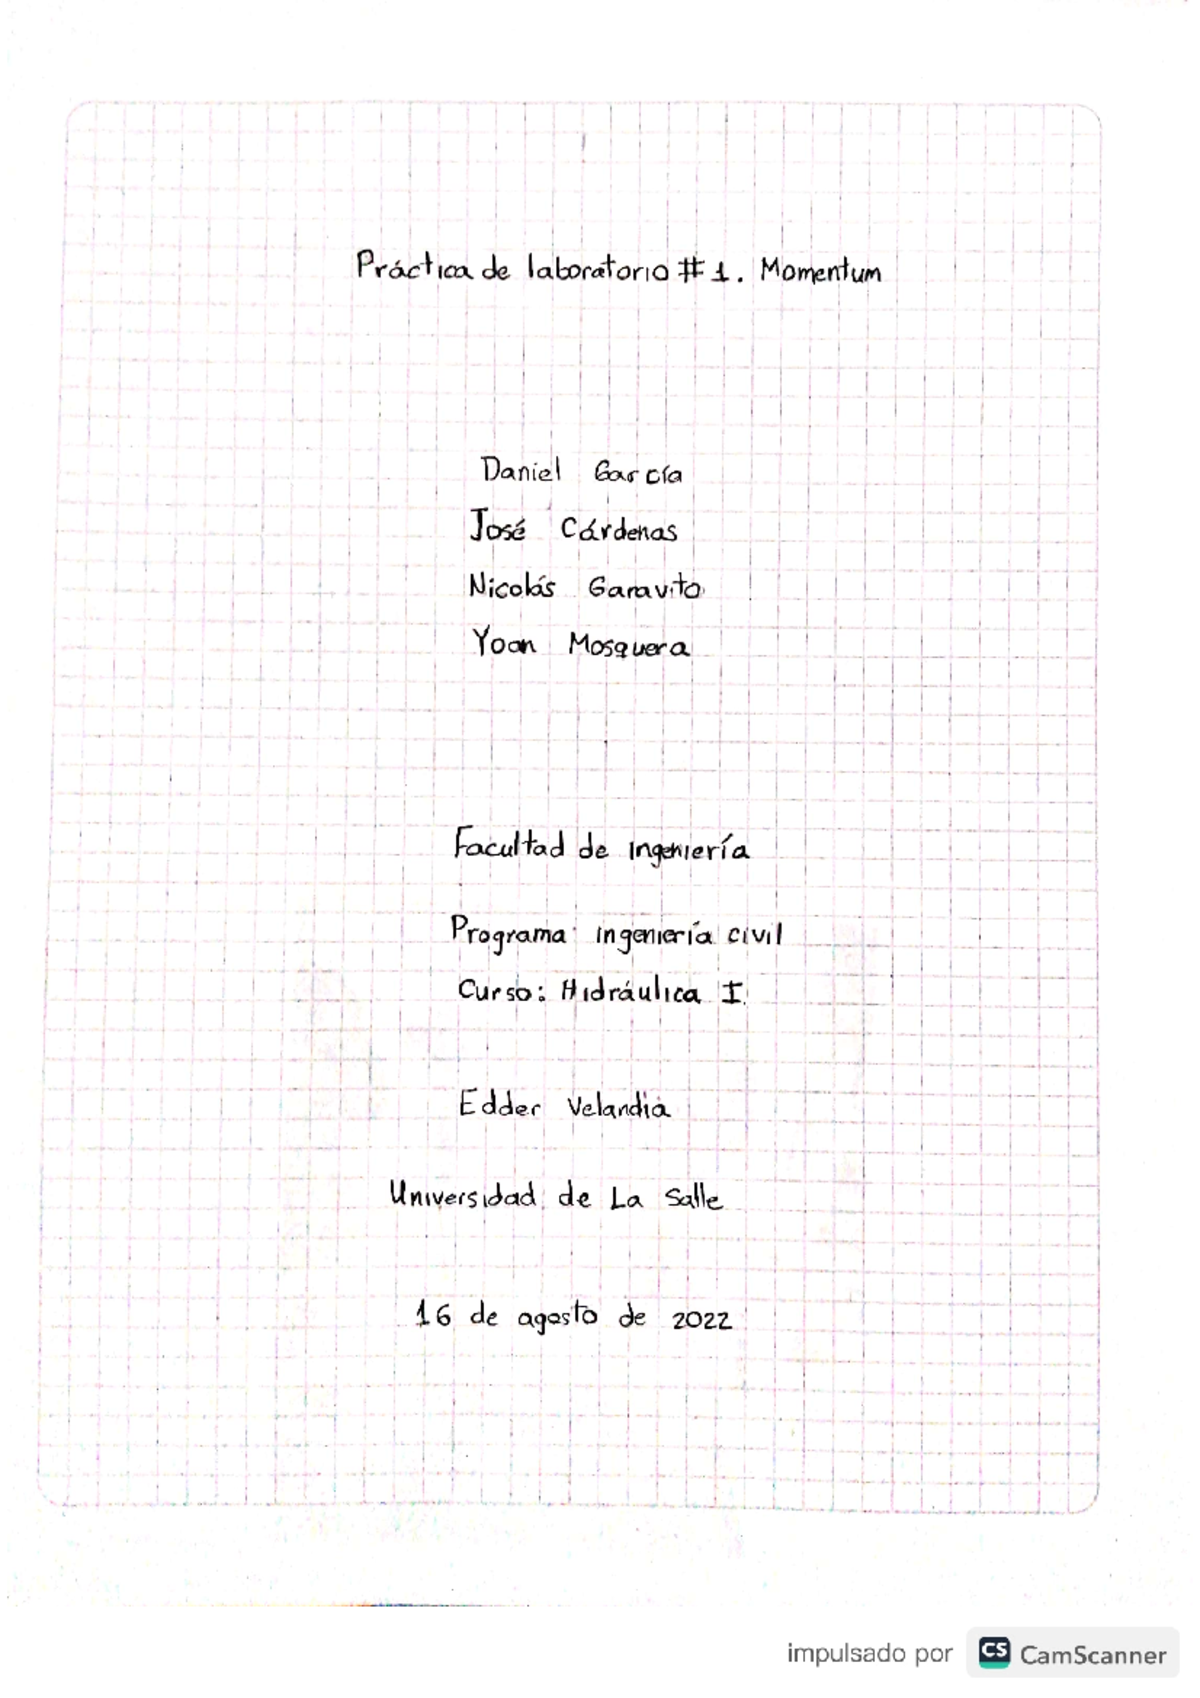 Práctica de laboratorio # 1. Momentum
Daniel García
José Cárdenas
Nicolás Garavito
Yoan Mosquera
Facultad de Ingeniería
Programa ingeniería civil
Curso: Hidráulica I
Edder Velandia
Universidad de La Salle
16 de agosto de 2022
impulsado por CS CamScanner